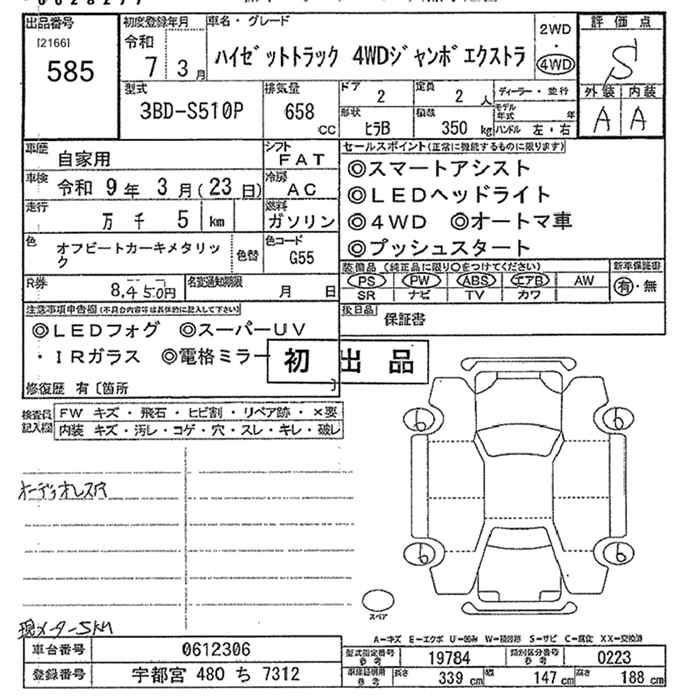 出品番号
[2166]
585
初度登録年月
令和
7 3月
車名・グレード
ハイゼットトラック 4WDジャンボエクストラ
2WD
・
4WD
評価点
S
外装 内装
A A
型式
3BD-S510P
排気量
658
CC
ドア
2
定員
2 人
ディーラー・並行
モデル年式 年
形状
ヒラB
積載
350 kg
ハンドル 左・右
車歴
自家用
シフト
FAT
車検
令和 9年 3月(23日)
冷房
AC
走行
万 千 5 km
燃料
ガソリン
色
オフビートカーキメタリック
色替
色コード
G55
R券
8,450円
名変通知期限
月 日
セールスポイント(正常に機能するものに限ります)
◎スマートアシスト
◎LEDヘッドライト
◎4WD ◎オートマ車
◎プッシュスタート
装備品(純正品に限り○をつけてください)
PS PW ABS エアB AW
SR ナビ TV カワ
新車保証書
有・無
後日品
保証書
注意事項申告欄(不具合内容等は具体的に記入して下さい)
◎LEDフォグ ◎スーパーUV
・IRガラス ◎電格ミラー
初出品
修復歴 有〔箇所 〕
検査員記入欄
FW キズ・飛石・ヒビ割・リペア跡・×要
内装 キズ・汚レ・コゲ・穴・スレ・キレ・破レ
オーディオレス
現メーター5KM
b b
b b
スペア
A=キズ E=エクボ U=凹み W=補修跡 S=サビ C=腐食 XX=交換済
車台番号
0612306
登録番号
宇都宮 480 ち 7312
型式指定番号
参考
19784
類別区分番号
参考
0223
車庫証明用
参考
長さ 339 cm
幅 147 cm
高さ 188 cm